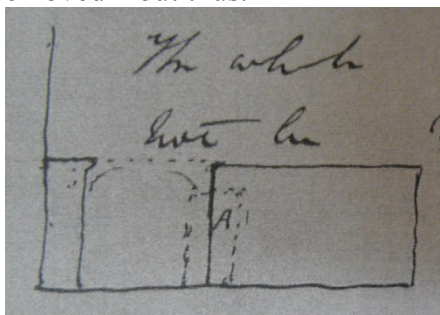 The whole
not be
A